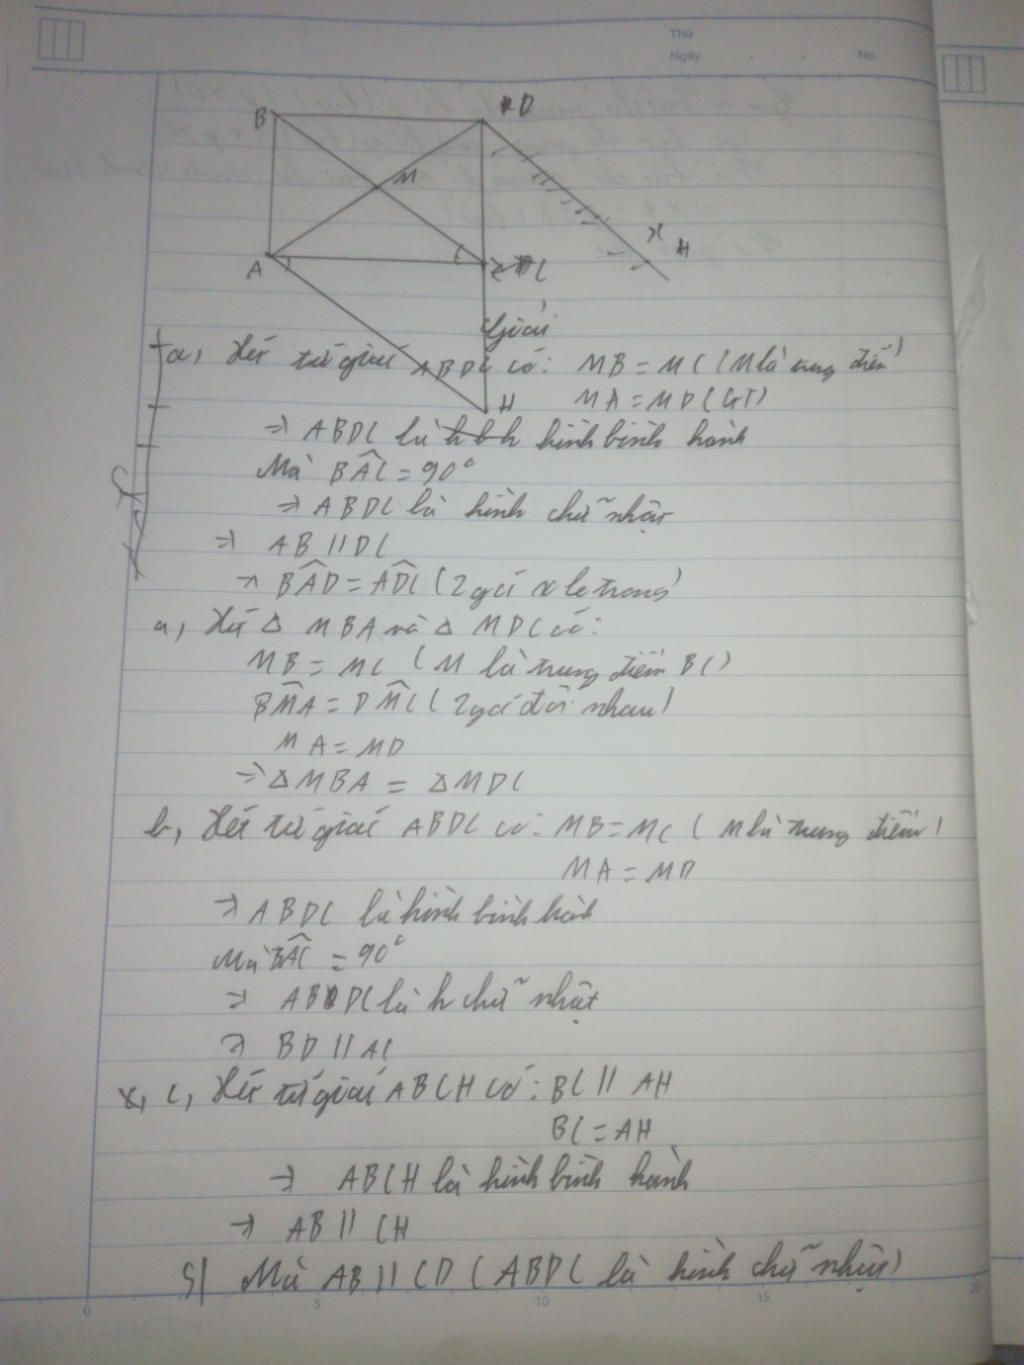 Thứ
Ngày No.
B D
M
x H
A C
Giải
H
a, Xét tứ giác ABDC có: MB = MC (M là trung điểm)
MA = MD (GT)
=> ABDC là hình bình hành
Mà BAC = 90°
=> ABDC là hình chữ nhật
=> AB // DC
=> BAD = ADC (2 góc so le trong)
a, Xét Δ MBA và Δ MDC có:
MB = MC (M là trung điểm BC)
BMA = DMC (2 góc đối nhau)
MA = MD
=> Δ MBA = Δ MDC
b, Xét tứ giác ABDC có: MB = MC (M là trung điểm)
MA = MD
=> ABDC là hình bình hành
Mà BAC = 90°
=> ABDC là h chữ nhật
=> BD // AC
c, Xét tứ giác ABCH có: BC // AH
BC = AH
=> ABCH là hình bình hành
=> AB // CH
Mà AB // CD (ABDC là hình chữ nhật)
0 5 10 15 20